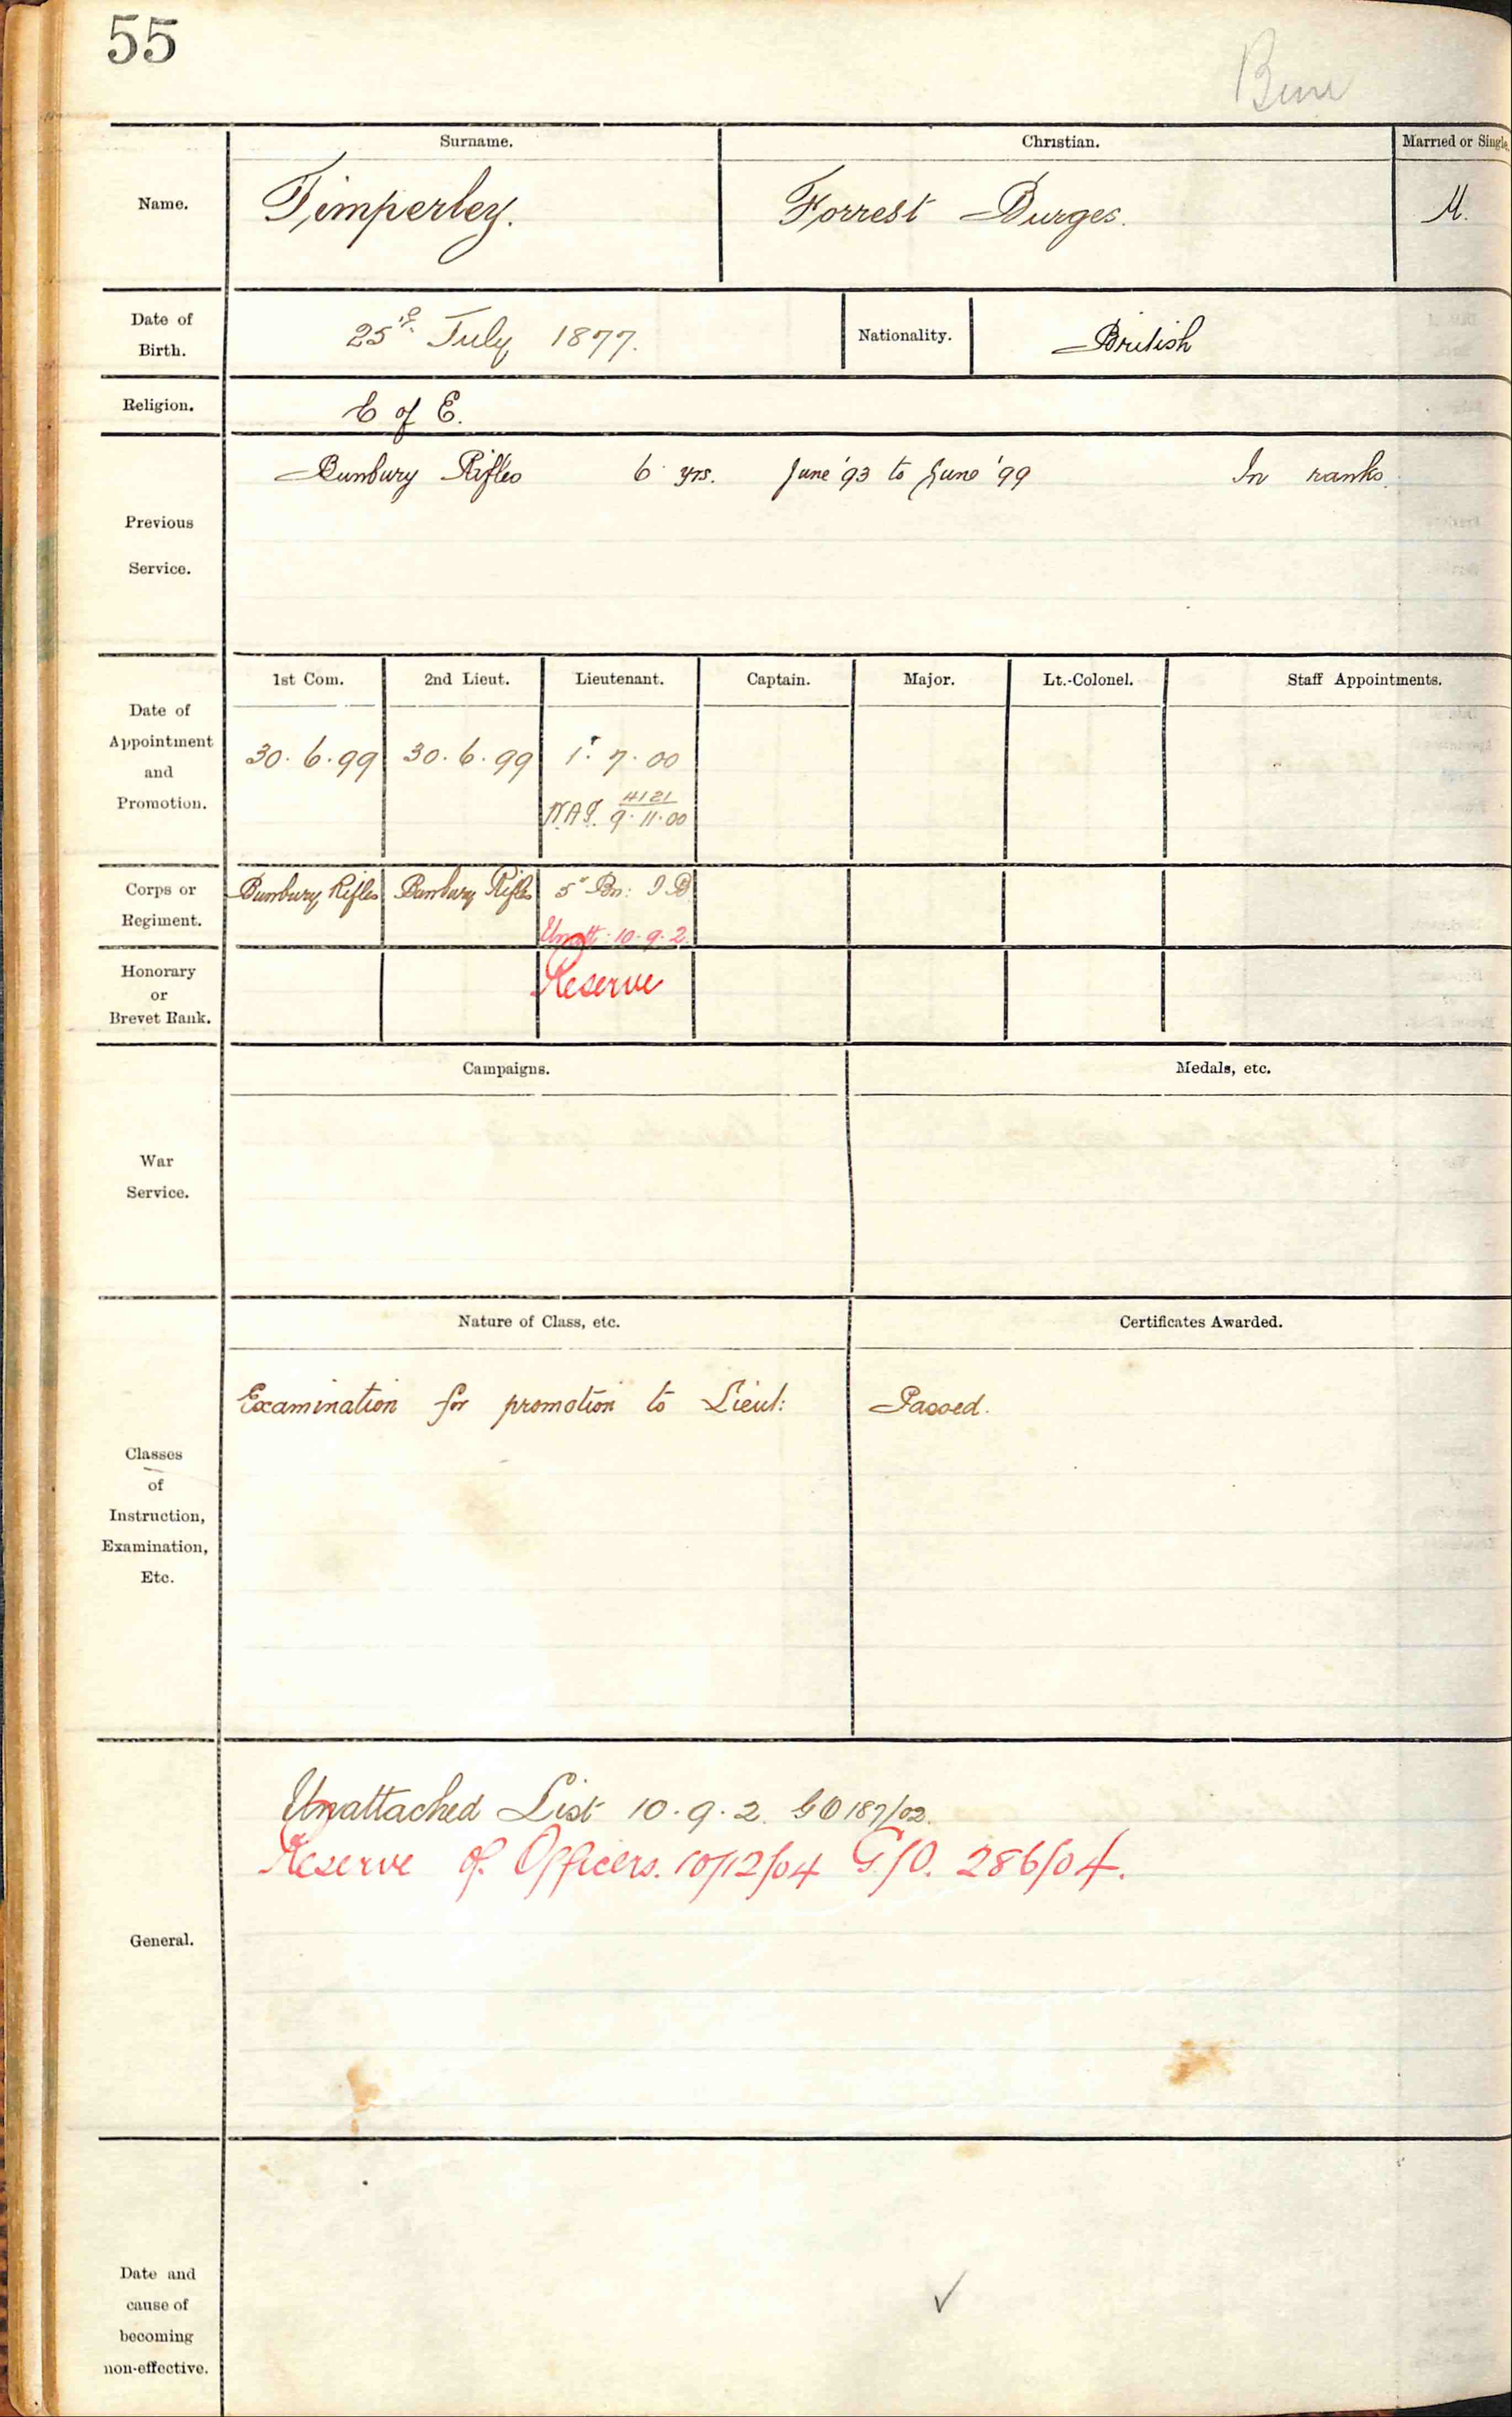 55
Surname. Christian. Married or Single
Name. Timperley. Forrest Burges. M.
Date of
Birth. 25th July 1877. Nationality. British
Religion. C of E.
Bunbury Rifles 6 yrs. June '93 to June '99 In ranks.
Previous
Service.
1st Com. 2nd Lieut. Lieutenant. Captain. Major. Lt.-Colonel. Staff Appointments.
Date of
Appointment
and
Promotion.
30.6.99 30.6.99 1.7.00
4121
9.11.00
Corps or
Regiment.
Bunbury Rifles Bunbury Rifles 5th Bn: I.B
Unatt: 10.9.2.
Honorary
or
Brevet Rank.
Reserve
Campaigns. Medals, etc.
War
Service.
Nature of Class, etc. Certificates Awarded.
Examination for promotion to Lieut: Passed.
Classes
of
Instruction,
Examination,
Etc.
Unattached List 10.9.2. GO 187/02.
Reserve of Officers. 10/12/04 G/O. 286/04.
General.
Date and
cause of
becoming
non-effective.